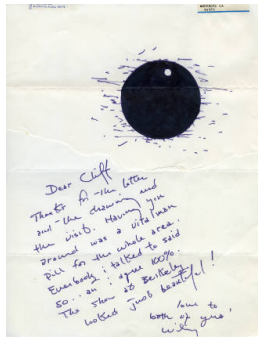 Dear Cliff
Thanks for the letter
and the drawing and
the visit. Having you
around was a vitamin
pill for the whole area.
Everybody i talked to said
so... an i agree 100%.
The show at Berkeley
looked just beautiful!
love to
both of you,